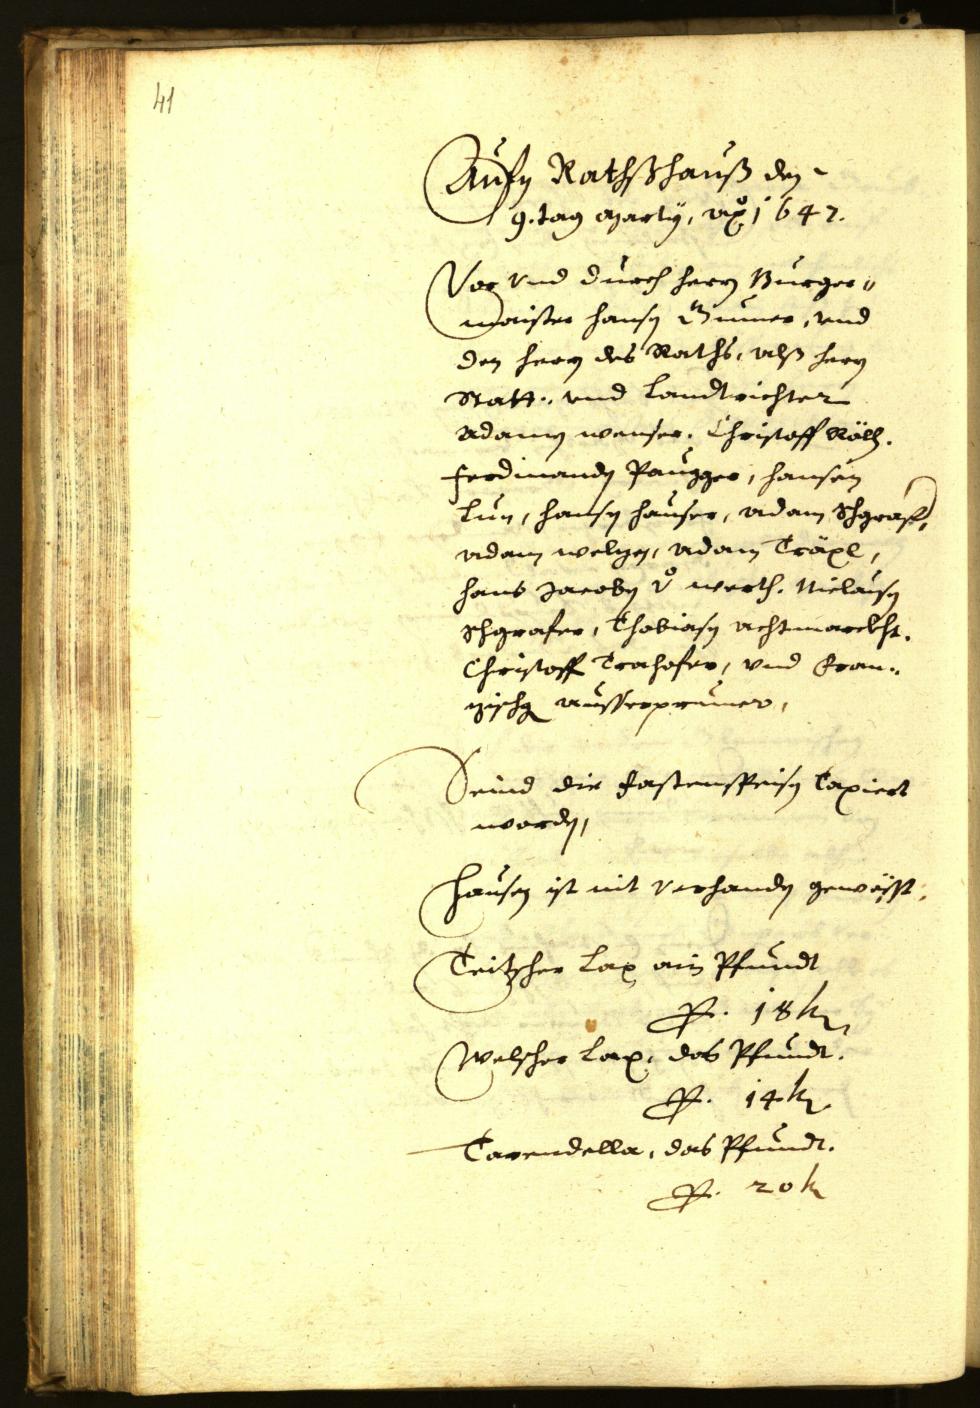 41
Aufm Rathßhauß den
9. tag Marty, Aõ 1647.
Vor vnd durch herrn Burger„
maister Hansen Gumer, vnd
den herrn des Raths, alß herrn
Statt- vnd Landtrichter
Adamen Wenser, Christoff Röll.
Ferdinanden Paugger, Hansen
Lun, Hansen Hauser, Adam Schgraff,
Adam Welzen, Adam Träxl,
Hans Jacoben v. Werth. Niclausen
Schgrafer, Thobiasen Achtmarckht.
Christoff Trahofer, vnd Fran„
zischg Ausserprunner,
Seind die Fastenspeisen Taxiert
worden,
Hausen ist nit verhanden gewösst.
Teitscher Lax ain Pfundt
P. 18 k
Welscher Lax, das Pfundt.
P. 14 k
Tarendella, das Pfundt.
P. 20 k